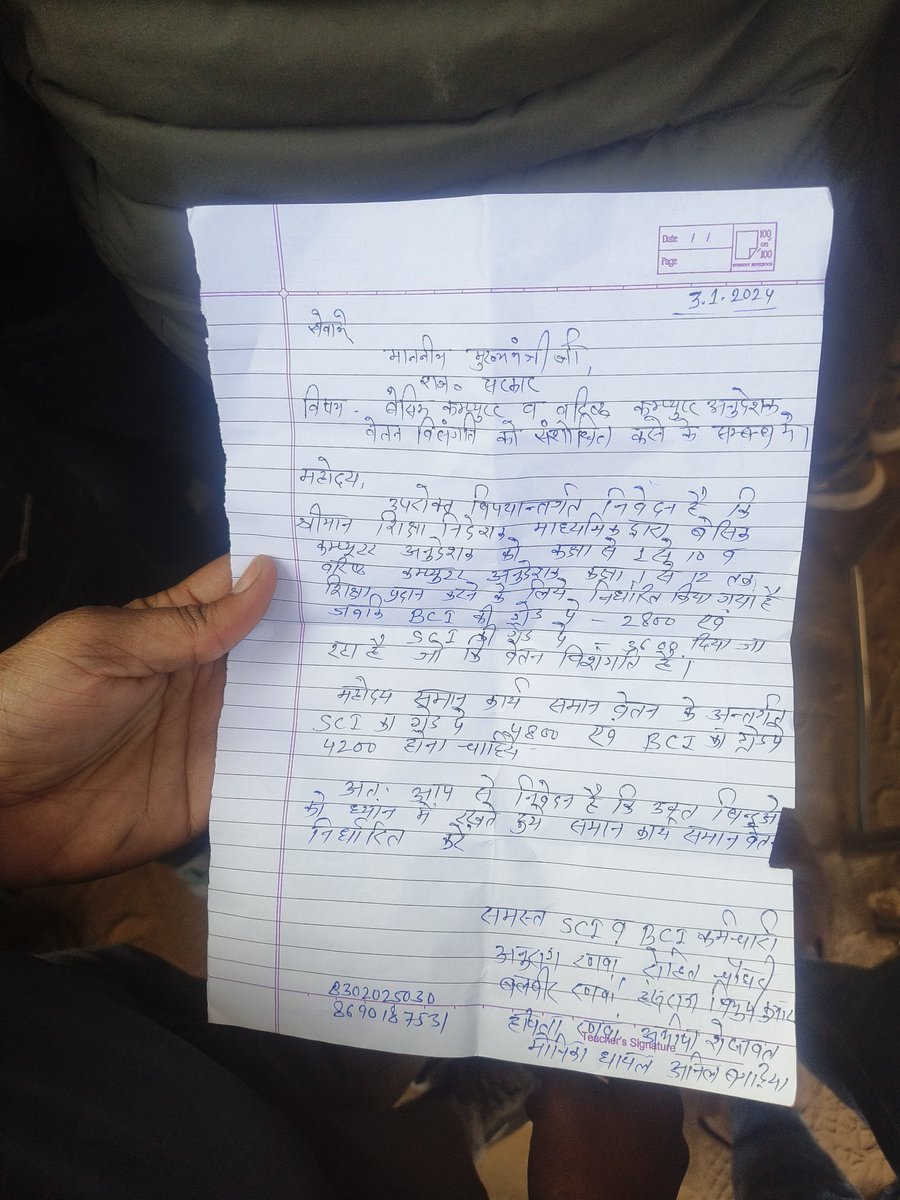 Date / /
Page
100 on 100
STUDENT NOTEBOOK
3.1.2024
सेवामें
माननीय मुख्यमंत्री जी,
राज० सरकार
विषय - बेसिक कम्प्युटर व वरिष्ठ कम्प्युटर अनुदेशक
वेतन विसंगति को संशोधित करने के सम्बन्ध में।
महोदय,
उपरोक्त विषयान्तर्गत निवेदन है कि
श्रीमान शिक्षा निदेशक माध्यमिक द्वारा बेसिक
कम्प्यूटर अनुदेशक को कक्षा से 1 से 10 व
वरिष्ठ कम्प्युटर अनुदेशक कक्षा से 12 तक
शिक्षा प्रदान करने के लिये निर्धारित किया गया है
जबकि BCI की ग्रेड पे - 2800 एवं
SCI की ग्रेड पे - 3600 दिया जा
रहा है जो कि वेतन विशंगति है।
महोदय समान कार्य समान वेतन के अन्तर्गत
SCI का ग्रेड पे 4800 एवं BCI का ग्रेड पे
4200 होना चाहिये
अतः आप से निवेदन है कि उक्त बिन्दुओ
को ध्यान में रखते हुये समान कार्य समान वेतन
निर्धारित करे
समस्त SCI व BCI कर्मचारी
अनुराग रणवां रोहित चौधरी
बलवीर रणवां
8302025030
8690187531
रणवां शेखावत
Teacher's Signature
धायल अनिल